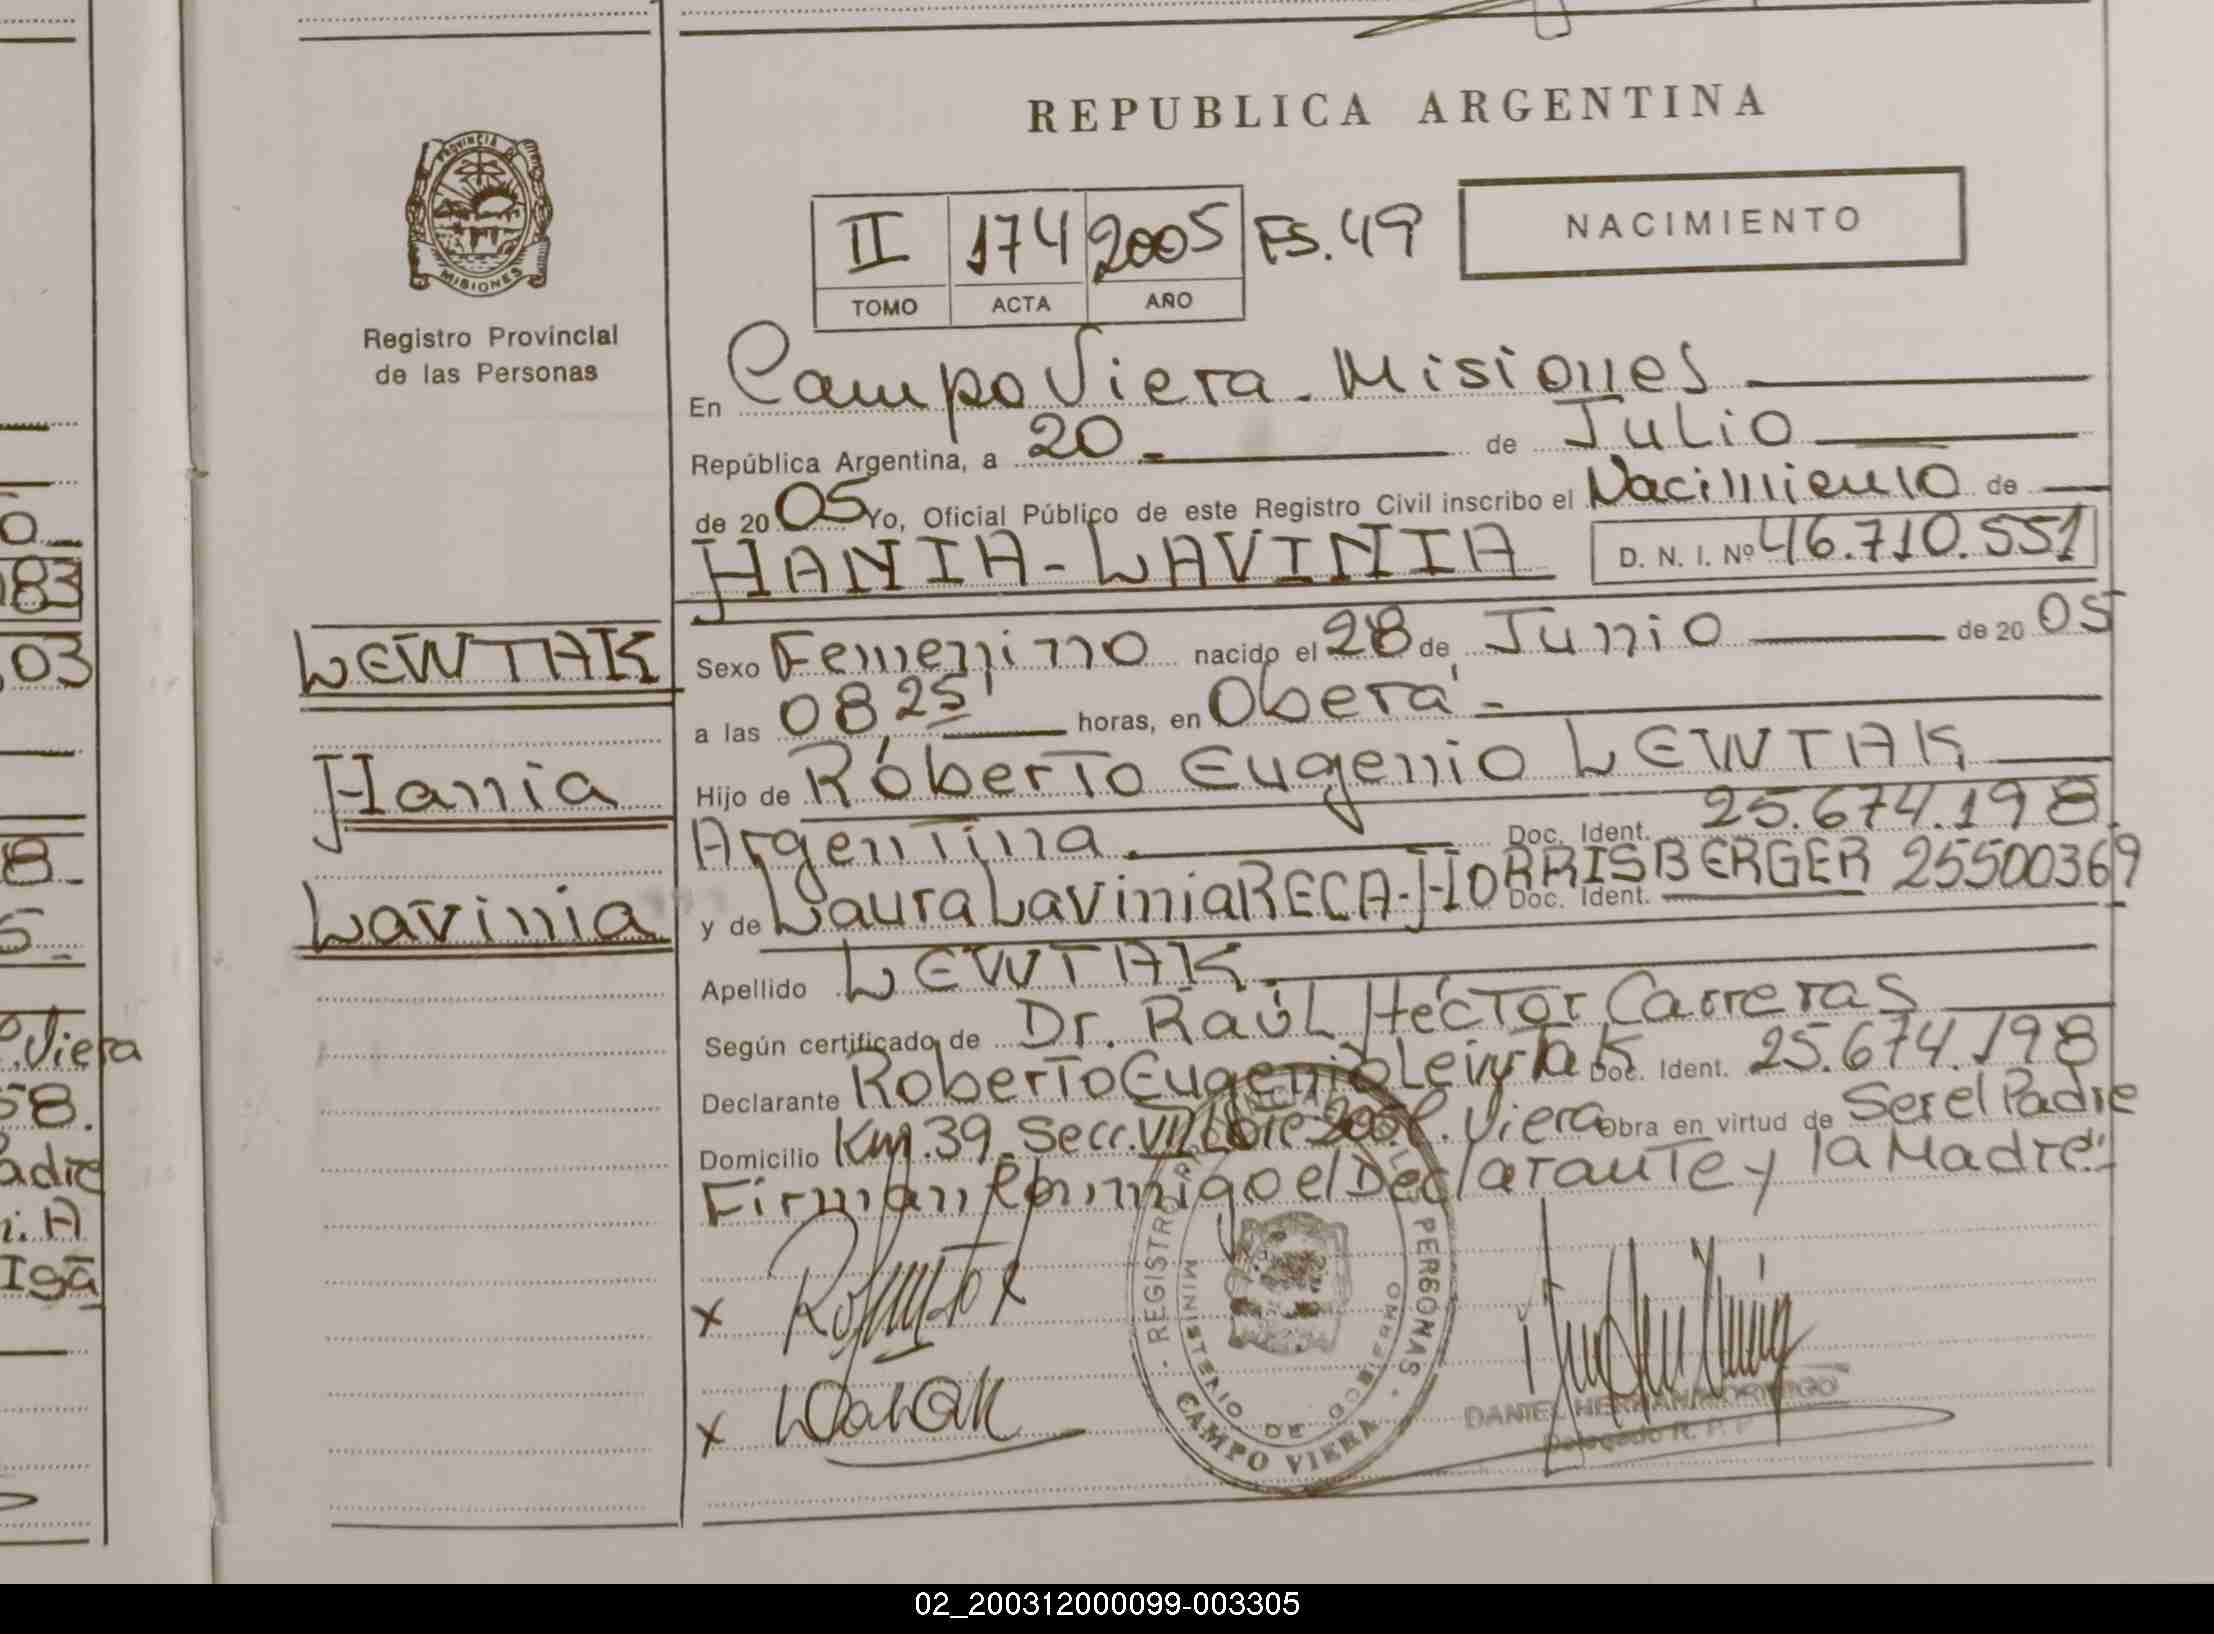 REPUBLICA ARGENTINA
PROVINCIA DE
MISIONES
Registro Provincial
de las Personas
II 174 2005 FS. 49
TOMO ACTA AÑO
NACIMIENTO
En Campo Viera - Misiones
República Argentina, a 20 - de Julio
de 2005 Yo, Oficial Público de este Registro Civil inscribo el Nacimiento de
HANIA - LAVINIA D. N. I. Nº 46.710.551
LEWTAK
Hania
Lavinia
Sexo Femenino nacido el 28 de Junio de 2005
a las 08,25' horas, en Oberá -
Hijo de Róberto Eugenio LEWTAK
Argentina. Doc. Ident. 25.674.198
y de Laura Lavinia RECA-HORRISBERGER Doc. Ident. 25500369
Apellido LEWTAK.
Según certificado de Dr. Raúl Héctor Carreras
Declarante Roberto Eugenio Lewtak Doc. Ident. 25.674.198
Domicilio Km. 39 - Secc. VII Lote 205 C. Viera Obra en virtud de Ser el Padre
Firman Conmigo el Declarante y la Madre.
x
x
REGISTRO PERSONAS
MINISTERIO DE GOBIERNO
CAMPO VIERA
DANIEL HERNAN
Delegado R. P. P
0
83
03
8
5
C. Viera
58.
adre
i. A
Isa
02_200312000099-003305